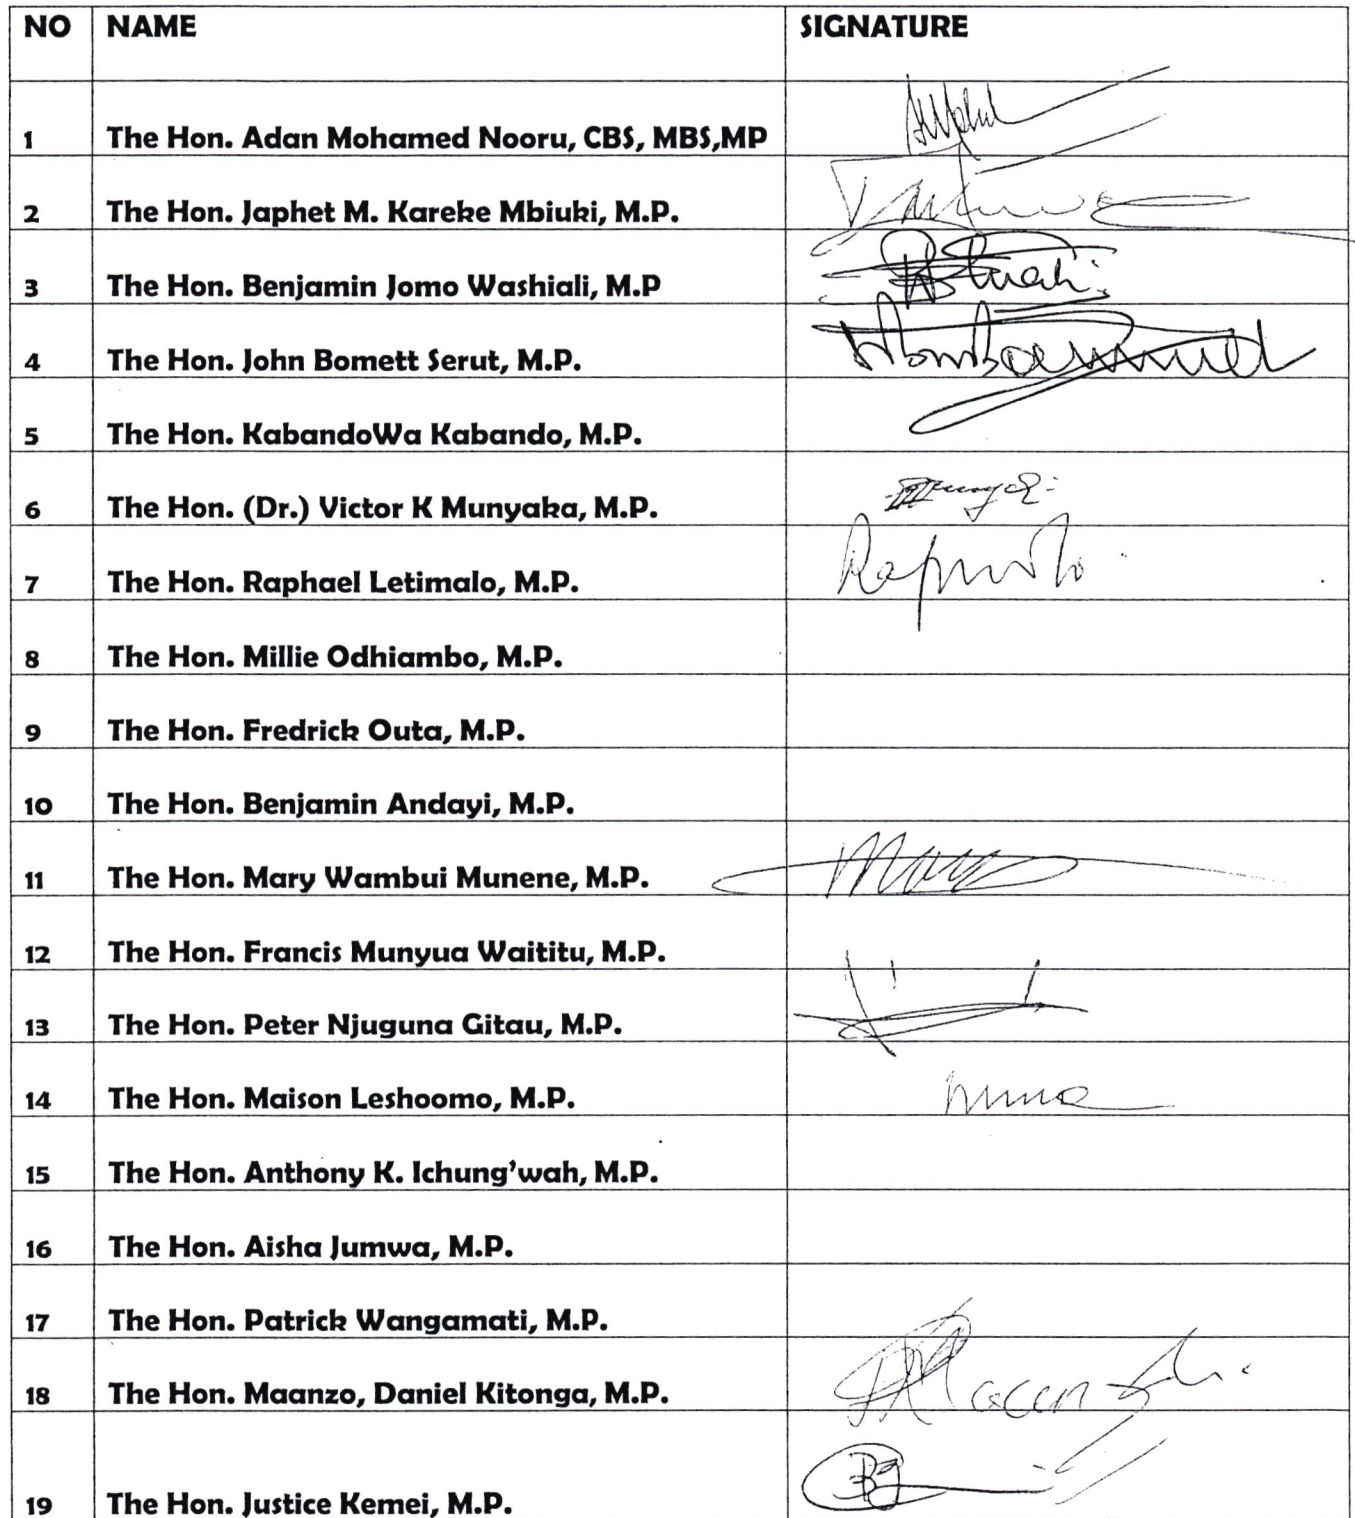 NO NAME SIGNATURE
1 The Hon. Adan Mohamed Nooru, CBS, MBS,MP
2 The Hon. Japhet M. Kareke Mbiuki, M.P.
3 The Hon. Benjamin Jomo Washiali, M.P
4 The Hon. John Bomett Serut, M.P.
5 The Hon. KabandoWa Kabando, M.P.
6 The Hon. (Dr.) Victor K Munyaka, M.P.
7 The Hon. Raphael Letimalo, M.P.
8 The Hon. Millie Odhiambo, M.P.
9 The Hon. Fredrick Outa, M.P.
10 The Hon. Benjamin Andayi, M.P.
11 The Hon. Mary Wambui Munene, M.P.
12 The Hon. Francis Munyua Waititu, M.P.
13 The Hon. Peter Njuguna Gitau, M.P.
14 The Hon. Maison Leshoomo, M.P.
15 The Hon. Anthony K. Ichung’wah, M.P.
16 The Hon. Aisha Jumwa, M.P.
17 The Hon. Patrick Wangamati, M.P.
18 The Hon. Maanzo, Daniel Kitonga, M.P.
19 The Hon. Justice Kemei, M.P.